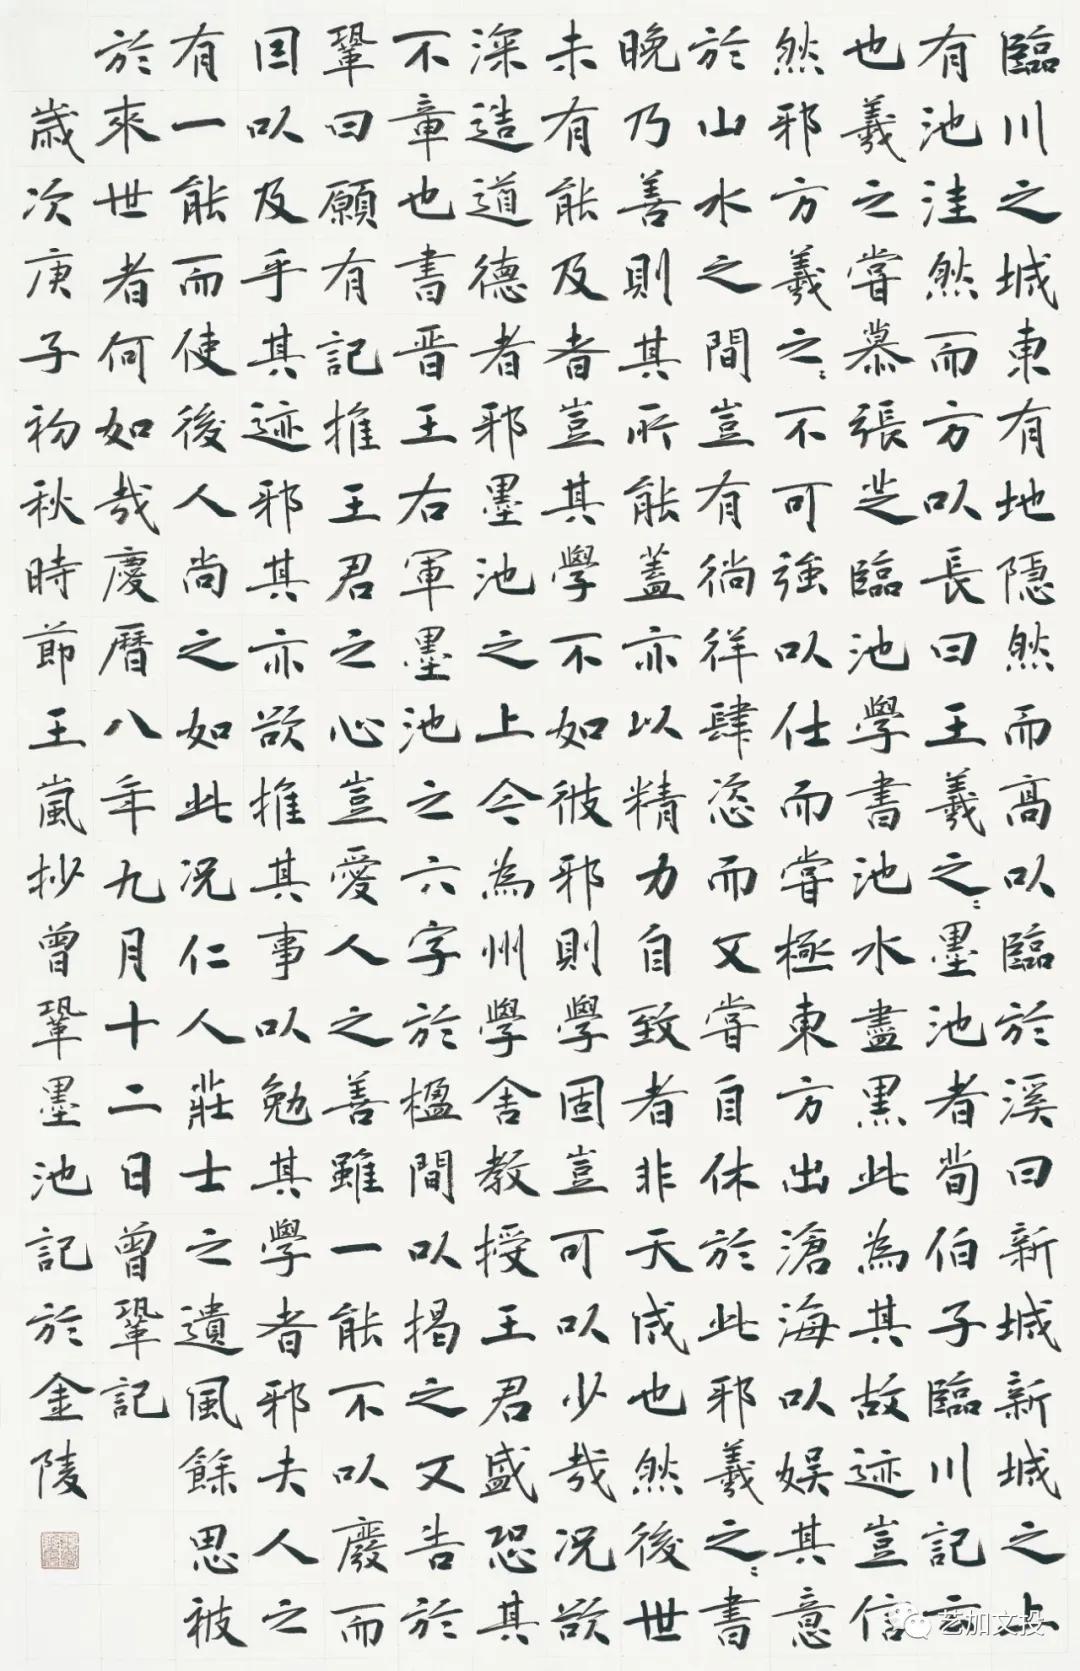 臨川之城東有地隱然而高以臨於溪曰新城新城之上
有池洼然而方以長曰王羲之〻墨池者荀伯子臨川記云
也羲之嘗慕張芝臨池學書池水盡黑此為其故迹豈信
然邪方羲之〻不可強以仕而嘗極東方出滄海以娛其意
於山水之間豈有徜徉肆恣而又嘗自休於此邪羲之〻書
晚乃善則其所能蓋亦以精力自致者非天成也然後世
未有能及者豈其學不如彼邪則學固豈可以少哉况欲
深造道德者邪墨池之上今為州學學舍教授王君盛恐其
不章也書晉王右軍墨池之六字於楹間以揭之又告於
鞏曰願有記推王君之心豈愛人之善雖一能不以廢而
因以及乎其迹邪其亦欲推其事以勉其學者邪夫人之
有一能而使後人尚之如此况仁人莊士之遺風餘思被
於來世者何如哉慶曆八年九月十二日曾鞏記
歲次庚子初秋時節王嵐抄曾鞏墨池記於金陵
艺加文投